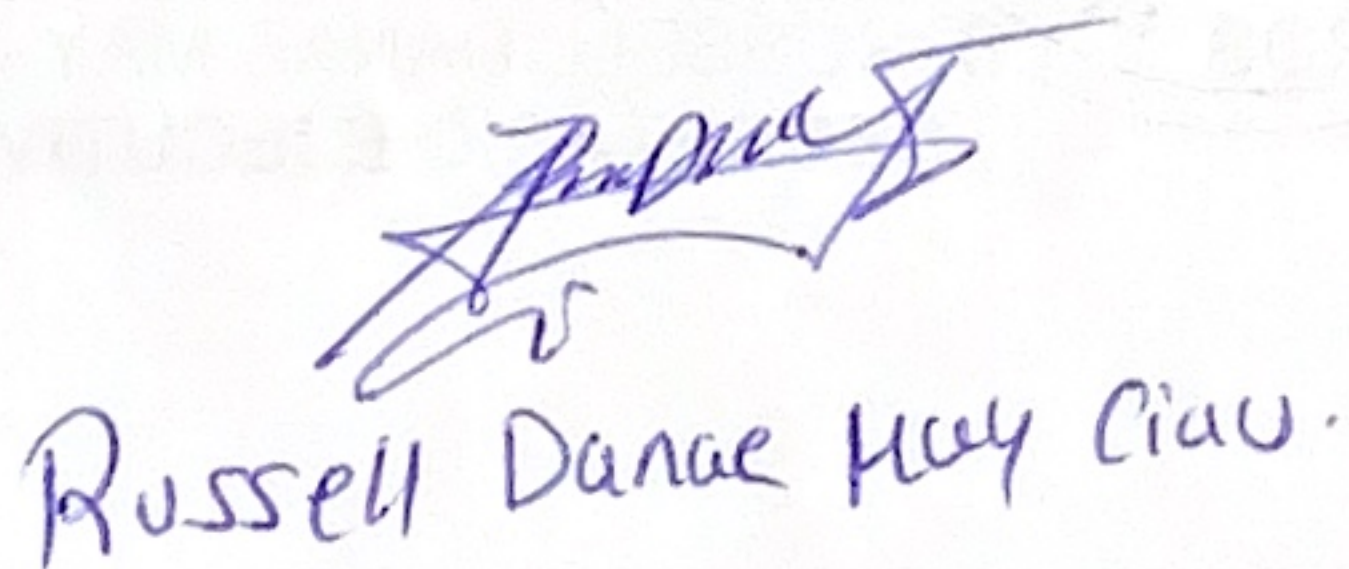 Russell Danae May Ciau.